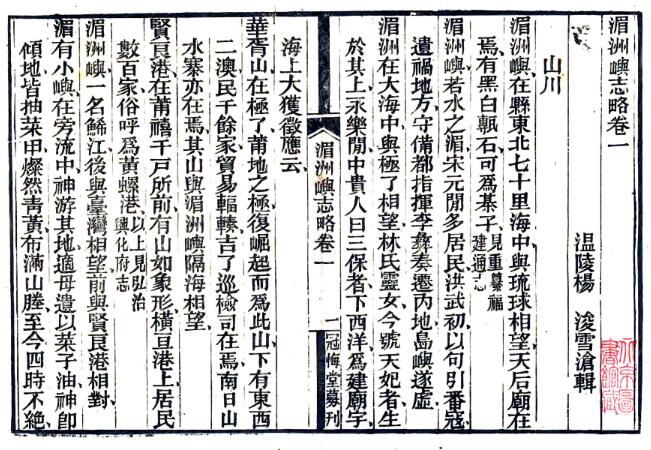 湄洲嶼志略卷一
温陵楊 浚雪滄輯
山川
湄洲嶼在縣東北七十里海中與琉球相望天后廟在
焉有黑白瓢石可爲棊子見重纂福建通志
湄洲嶼若水之湄宋元閒多居民洪武初以句引番寇
遺禍地方守備都指揮李彝奏遷內地島嶼遂虛
湄洲在大海中與極了相望林氏靈女今號天妃者生
於其上永樂閒中貴人曰三保者下西洋爲建廟宇
湄洲嶼志略卷一 一 冠悔堂募刊
海上大獲徵應云
華胥山在極了莆地之極復崛起而爲此山下有東西
二澳民千餘家貿易輻輳吉了巡檢司在焉南日山
水寨亦在焉其山與湄洲嶼隔海相望
賢良港在莆禧千戶所前有山如象形橫亘港上居民
數百家俗呼爲黃螺港以上見弘治興化府志
湄洲嶼一名鯑江後與臺灣相望前與賢良港相對
湄有小嶼在旁流中神游其地適母遺以菜子油神卽
傾地皆抽菜甲燦然青黃布滿山塍至今四時不絕